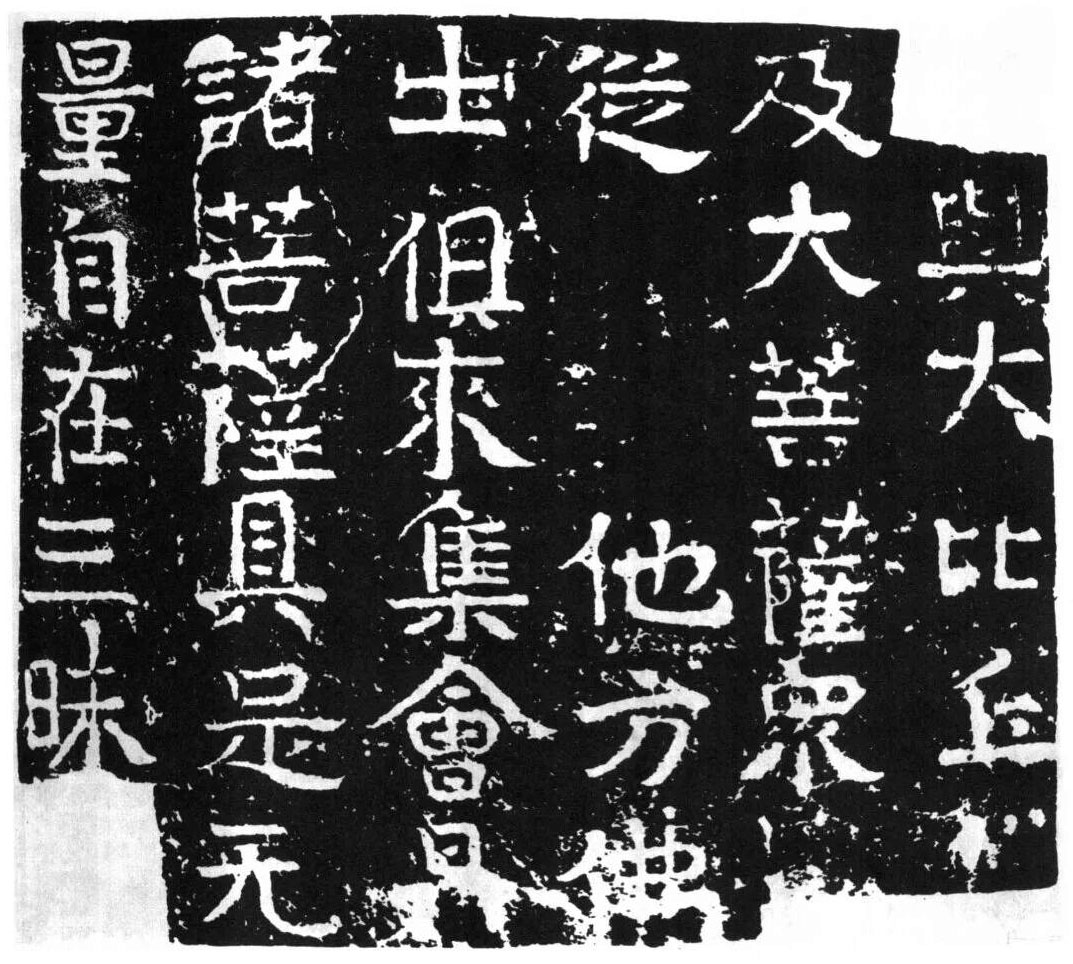 與大比丘
及大菩薩眾
從他方佛
土俱來集會
諸菩薩具是无
量自在三昧